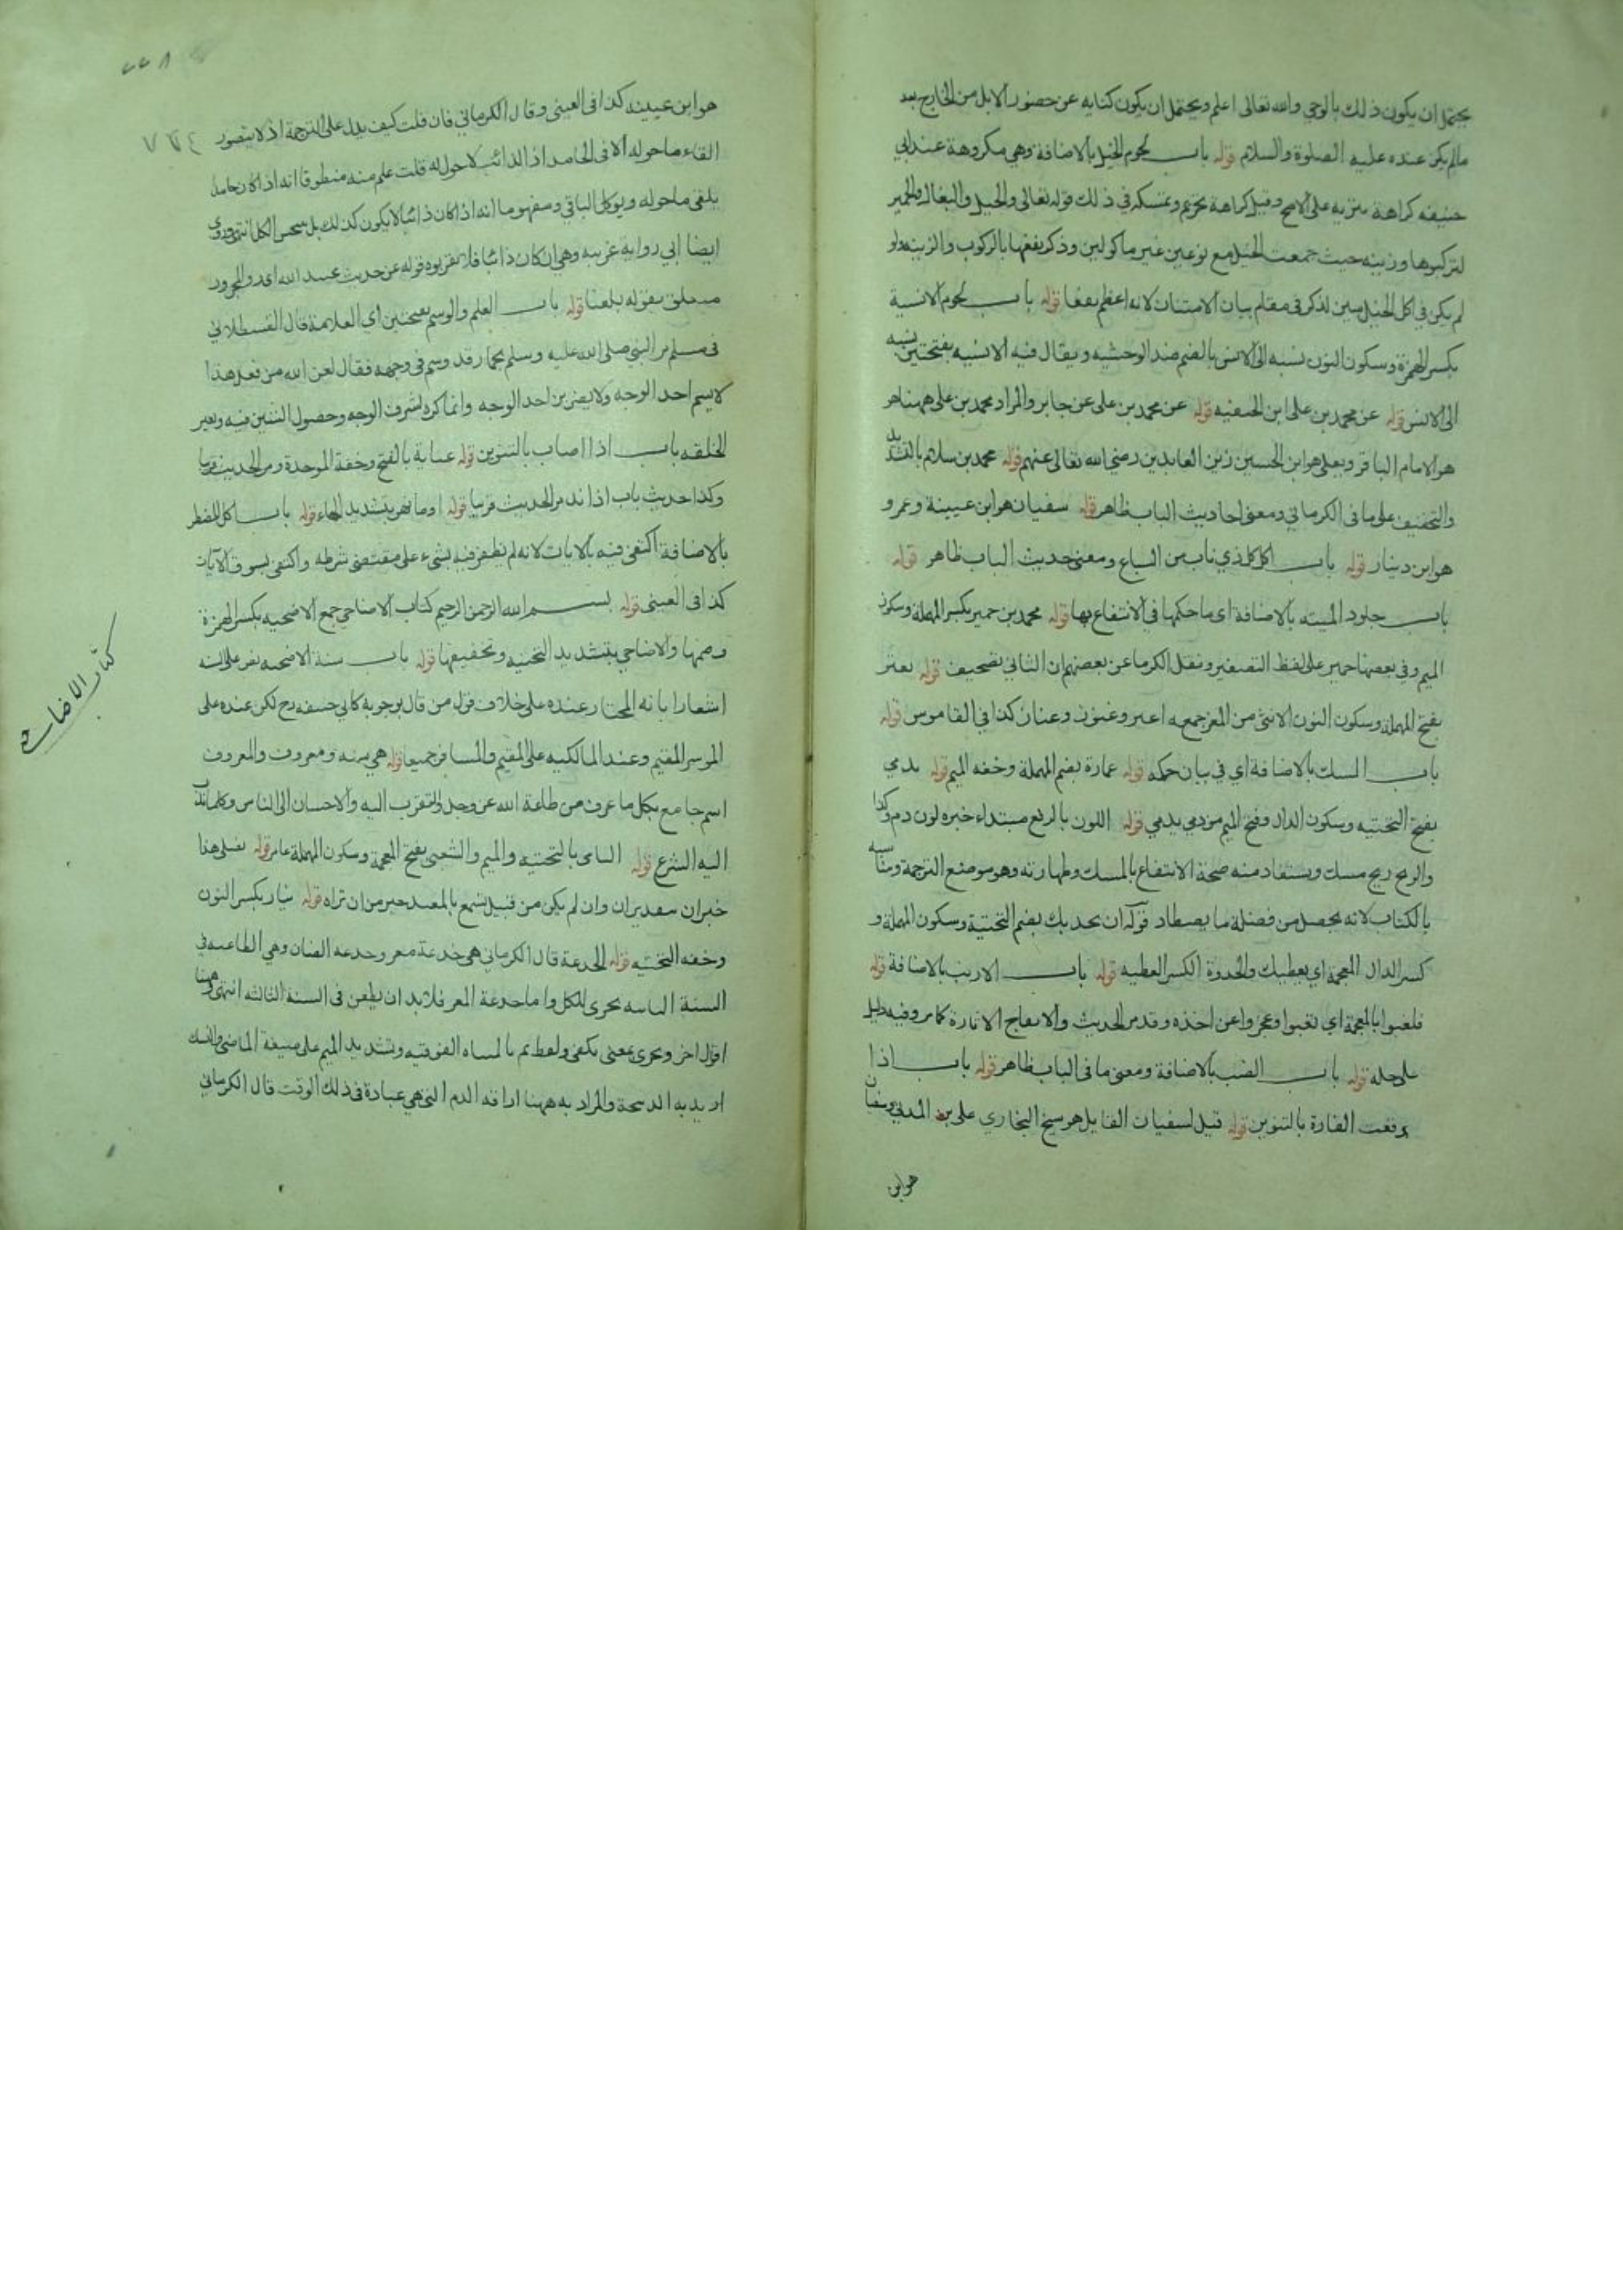 يحتمل ان يكون ذلك بالوحي والله تعالى اعلم ويحتمل ان يكون كنايه عن حضور الابل من الخارج بعد
مالم يكن عنده عليه الصلوة والسلام قوله باب لحوم الخيل بالاضافة وهي مكروهة عند ابي
حنيفه كراهة تنزيه على الاصح وقيل كراهة تحريم وتمسكه في ذلك قوله تعالى والخيل والبغال والحمير
لتركبوها وزينه حيث جمعت الخيل مع نوعين غير ماكولين وذكر نفعها بالركوب والزينه ولو
لم يكن في اكل الخيل سين لذكر في مقام بيان الامتنان لانه اعظم نفعا قوله باب لحوم الانسية
بكسر الهمزة وسكون النون نسبه الى الانس بالضم ضد الوحشيه ويقال فيه الانسيه بفتحتين نسبه
الى الانس قوله عن محمد بن على ابن الحنفيه قوله عن محمد بن على عن جابر والمراد محمد بن على ههنا هو
هو الامام الباقر وعلى هو ابن الحسين زين العابدين رضي الله تعالى عنهم قوله محمد بن سلام بالتشديد
والتخفيف على ما فى الكرماني ومعنى احاديث الباب ظاهر قوله سفيان هو ابن عيينة وعمرو
هو ابن دينار قوله باب اكل كل ذي ناب من السباع ومعنى حديث الباب ظاهر قوله
باب جلود الميته بالاضافة اى ما حكمها في الانتفاع بها قوله محمد بن حمير بكسر المهملة وسكون
الميم وفي بعضها حمير على لفظ التصغير ونقل الكرما عن بعضهم ان الثاني تصحيف قوله بعنز
بفتح المهملة وسكون النون الانثى من المعز جمعه اعنز وعنوز وعناز كذا في القاموس قوله
باب المسك بالاضافة اي في بيان حكمه قوله عمارة بضم المهملة وخفه الميم قوله يدمي
بفتح التحتيه وسكون الدال وفتح الميم من دمي يدمي قوله اللون بالرفع مبتداء خبره لون دم وكذا
والريح ريح مسك ويستفاد منه صحة الانتفاع بالمسك وطهارته وهو موضع الترجمة ومناسبه
بالكتاب لانه يحصل من فضلة ما يصطاد قوله ان يحديك بضم التحتية وسكون المهملة و
كسر الدال المعجمة اي يعطيك والحدوة الكسر العطيه قوله باب الارنب بالاضافة قوله
فلغبوا بالمعجمة اي تعبوا وعجزوا عن اخذه وقد مر الحديث والانفاج الاثارة كما مر وفيه دليل
على حله قوله باب الضب بالاضافة ومعنى ما فى الباب ظاهر قوله باب اذا
وقعت الفارة بالتنوين قوله قيل لسفيان القايل هو شيخ البخاري على بن المدني وسفيان
هو ابن
٢٢٨
هو ابن عيينه كذا فى العينى وقال الكرماني فان قلت كيف يدل على الترجمة اذ لا يتصور
القاء ما حوله الا فى الجامد اذ الذائب لا حول له قلت علم منه منطوقا انه اذا كان جامدا
يلقى ما حوله ويوكل الباقي ومفهوما انه اذا كان ذائبا لا يكون كذلك بل ينجس الكل انتهى وروى
ايضا ابي رواية غريبه وهي ان كان ذائبا فلا تقربوه قوله عن حديث عبيد الله اى والمجرور
متعلق بقوله بلغنا قوله باب العلم والوسم بفتحتين اي العلامة قال القسطلاني
فى مسلم مر النبى صلى الله عليه وسلم بحمار قد وسم فى وجهه فقال لعن الله من فعل هذا
لا يسم احد الوجه ولا يضربن احد الوجه وانما كره لشرف الوجه وحصول الشين فيه وتغير
الخلقه باب اذا اصاب بالتنوين قوله عباية بالفتح وخفة الموحدة ومر الحديث قريبا
وكذا حديث باب اذا ند مر الحديث قريبا قوله اوما نهر بتشديد الهاء قوله باب اكل المضطر
بالاضافة اكتفى فيه بالايات لانه لم يظفر فيه بشيء على مقتضى شرطه واكتفى بسوق الآيات
كذا فى العينى قوله بسم الله الرحمن الرحيم كتاب الاضاحي جمع الاضحيه بكسر الهمزة
وضمها والاضاحي بتشديد التحتيه وتخفيفها قوله باب سنة الاضحيه نص على السنه
اشعارا بانه المختار عنده على خلاف قول من قال بوجوبه كابي حنيفه رح لكن عنده على
الموسر المقيم وعند المالكيه على المقيم والمسافر جميعا قوله هي سنه ومعروف والمعروف
اسم جامع بكل ما عرف من طاعة الله عز وجل والتقرب اليه والاحسان الى الناس وكل ما ندب
اليه الشرع قوله اليامى بالتحتيه والميم والشعبى بفتح المعجمة وسكون المهملة عامر قوله نصلى هذا
خبر ان بتقدير ان وان لم يكن من قبيل تسمع بالمعيدي خير من ان تراه قوله نيار بكسر النون
وخفه التحتيه قوله الجذعة قال الكرماني هي جذعة معز وجذعه الضان وهي الطاعنه في
السنة الثانيه يجزى للكل واما جذعة المعز فلا بد ان يطعن فى السنة الثالثه انتهى وههنا
اقوال اخر وتجزى بمعنى يكفى ولفظ تم بالمثناه الفوقيه وتشديد الميم على صيغة الماضى والنسك
اريد به الذبيحة والمراد به ههنا اراقه الدم التي هي عبادة فى ذلك الوقت قال الكرماني
كتاب الاضاحي